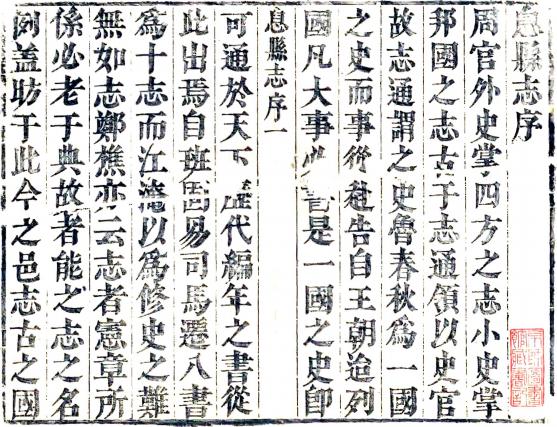 息縣志序
周官外史掌四方之志小史掌
邦國之志古于志通領以史官
故志通謂之史魯春秋為一國
之史而事衍赴告自王朝迨列
國凡大事必書是一國之史即
息縣志序一
可通於天下歷代編年之書從
此出焉自班固易司馬遷八書
爲十志而江淹以爲修史之難
無如志鄭樵亦云志者憲章所
係必老于典故者能之志之名
列盖昉于此今之邑志古之國